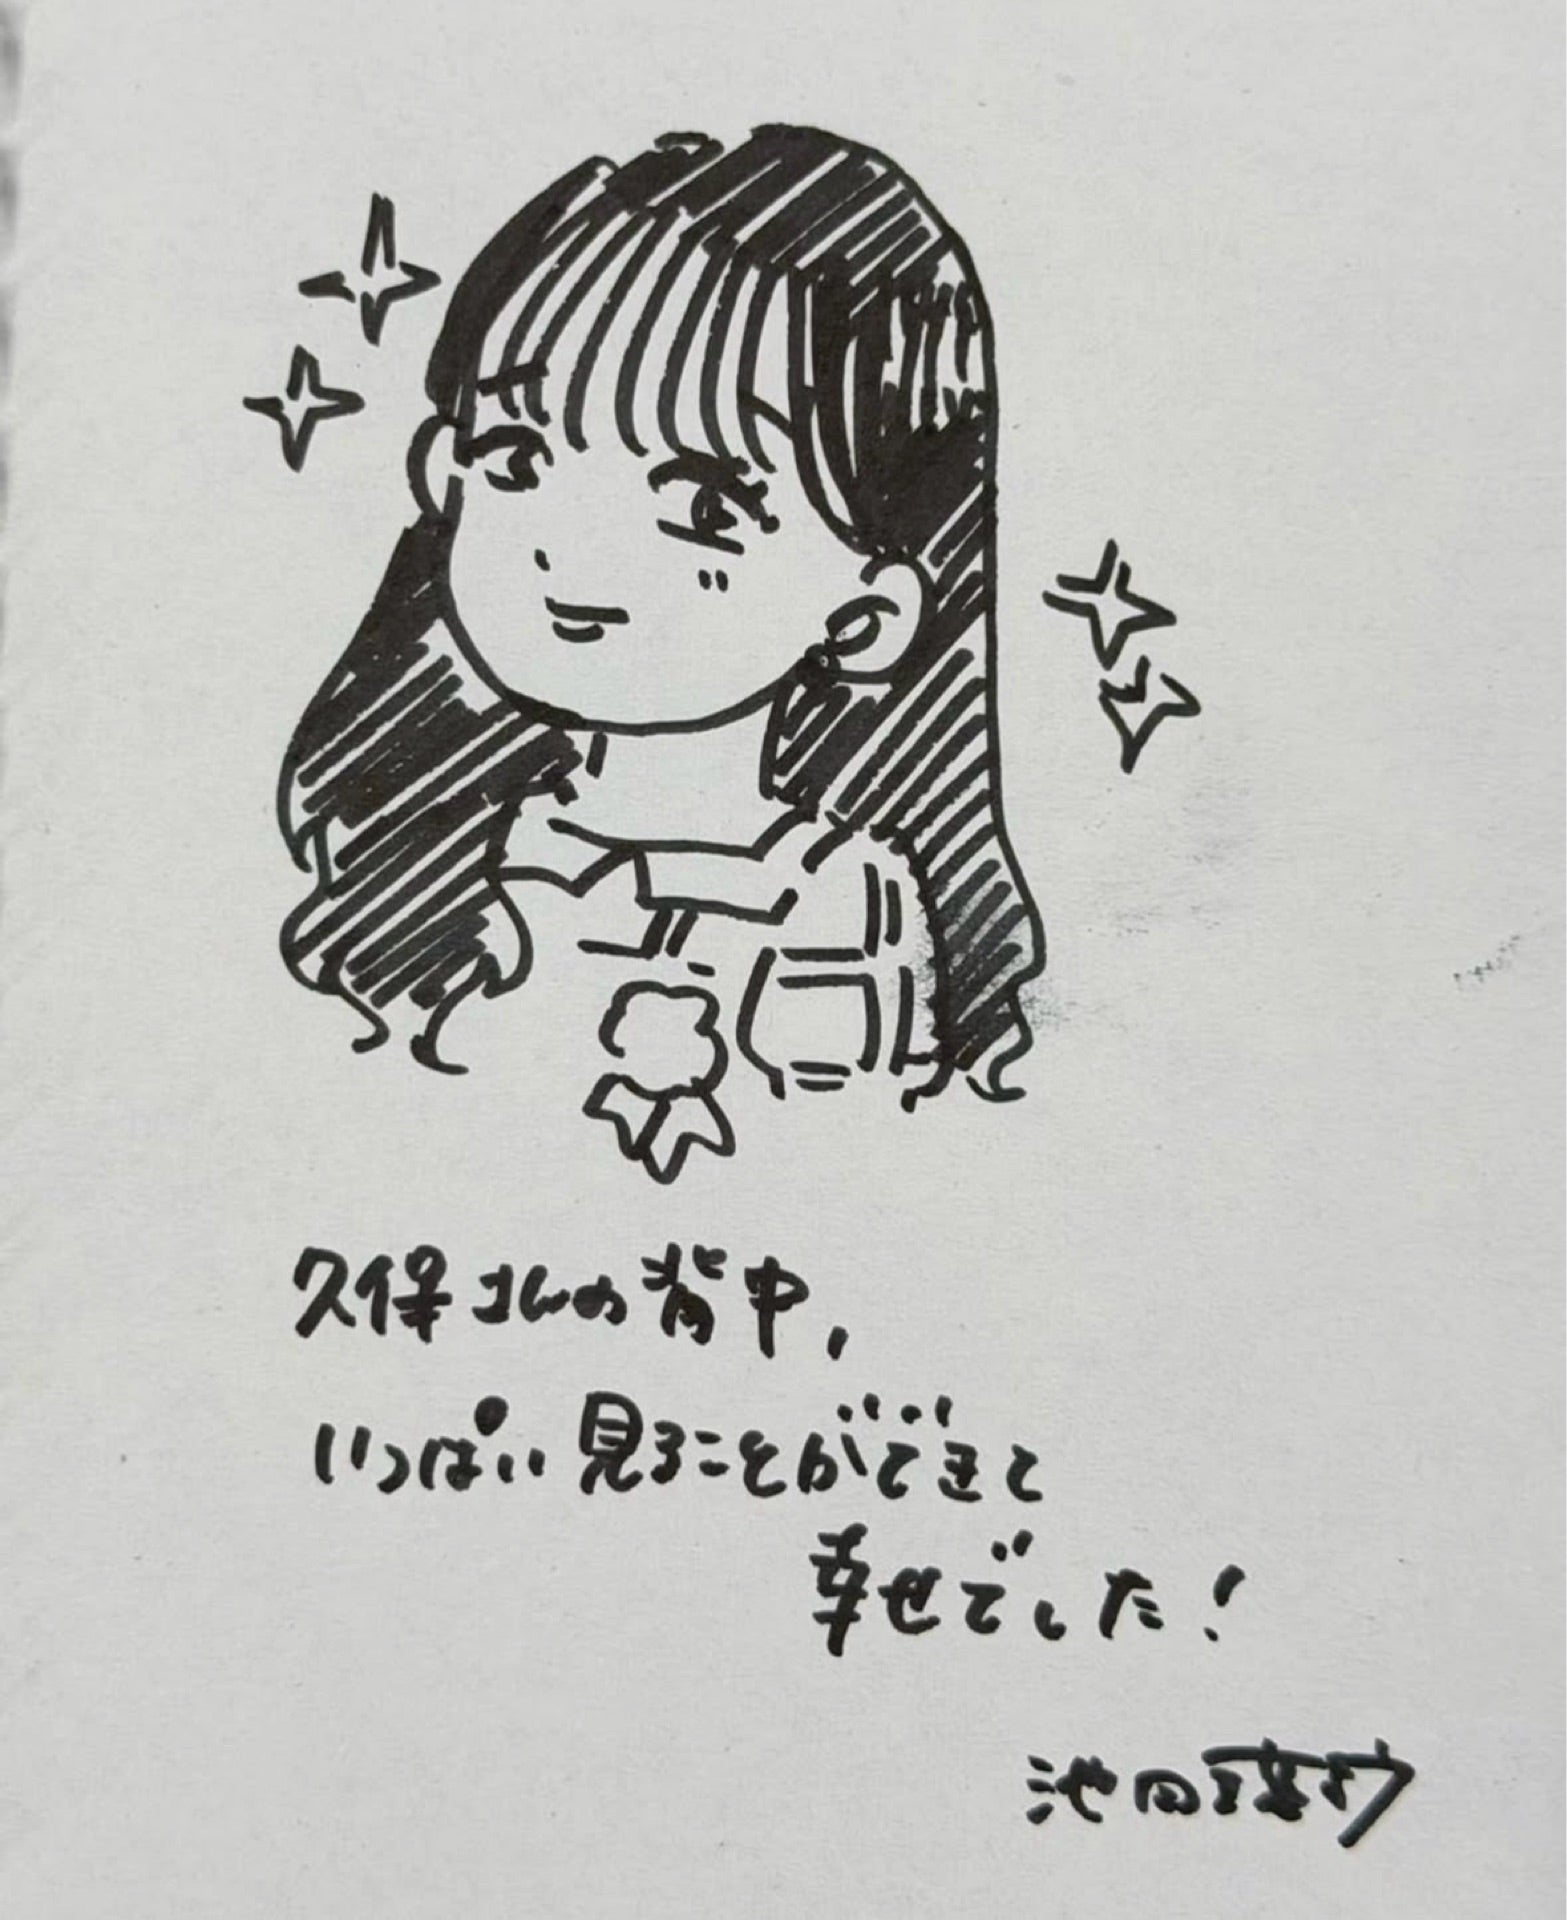 久保さんの背中,
いっぱい見ることができて
幸せでした！
池田瑛紗